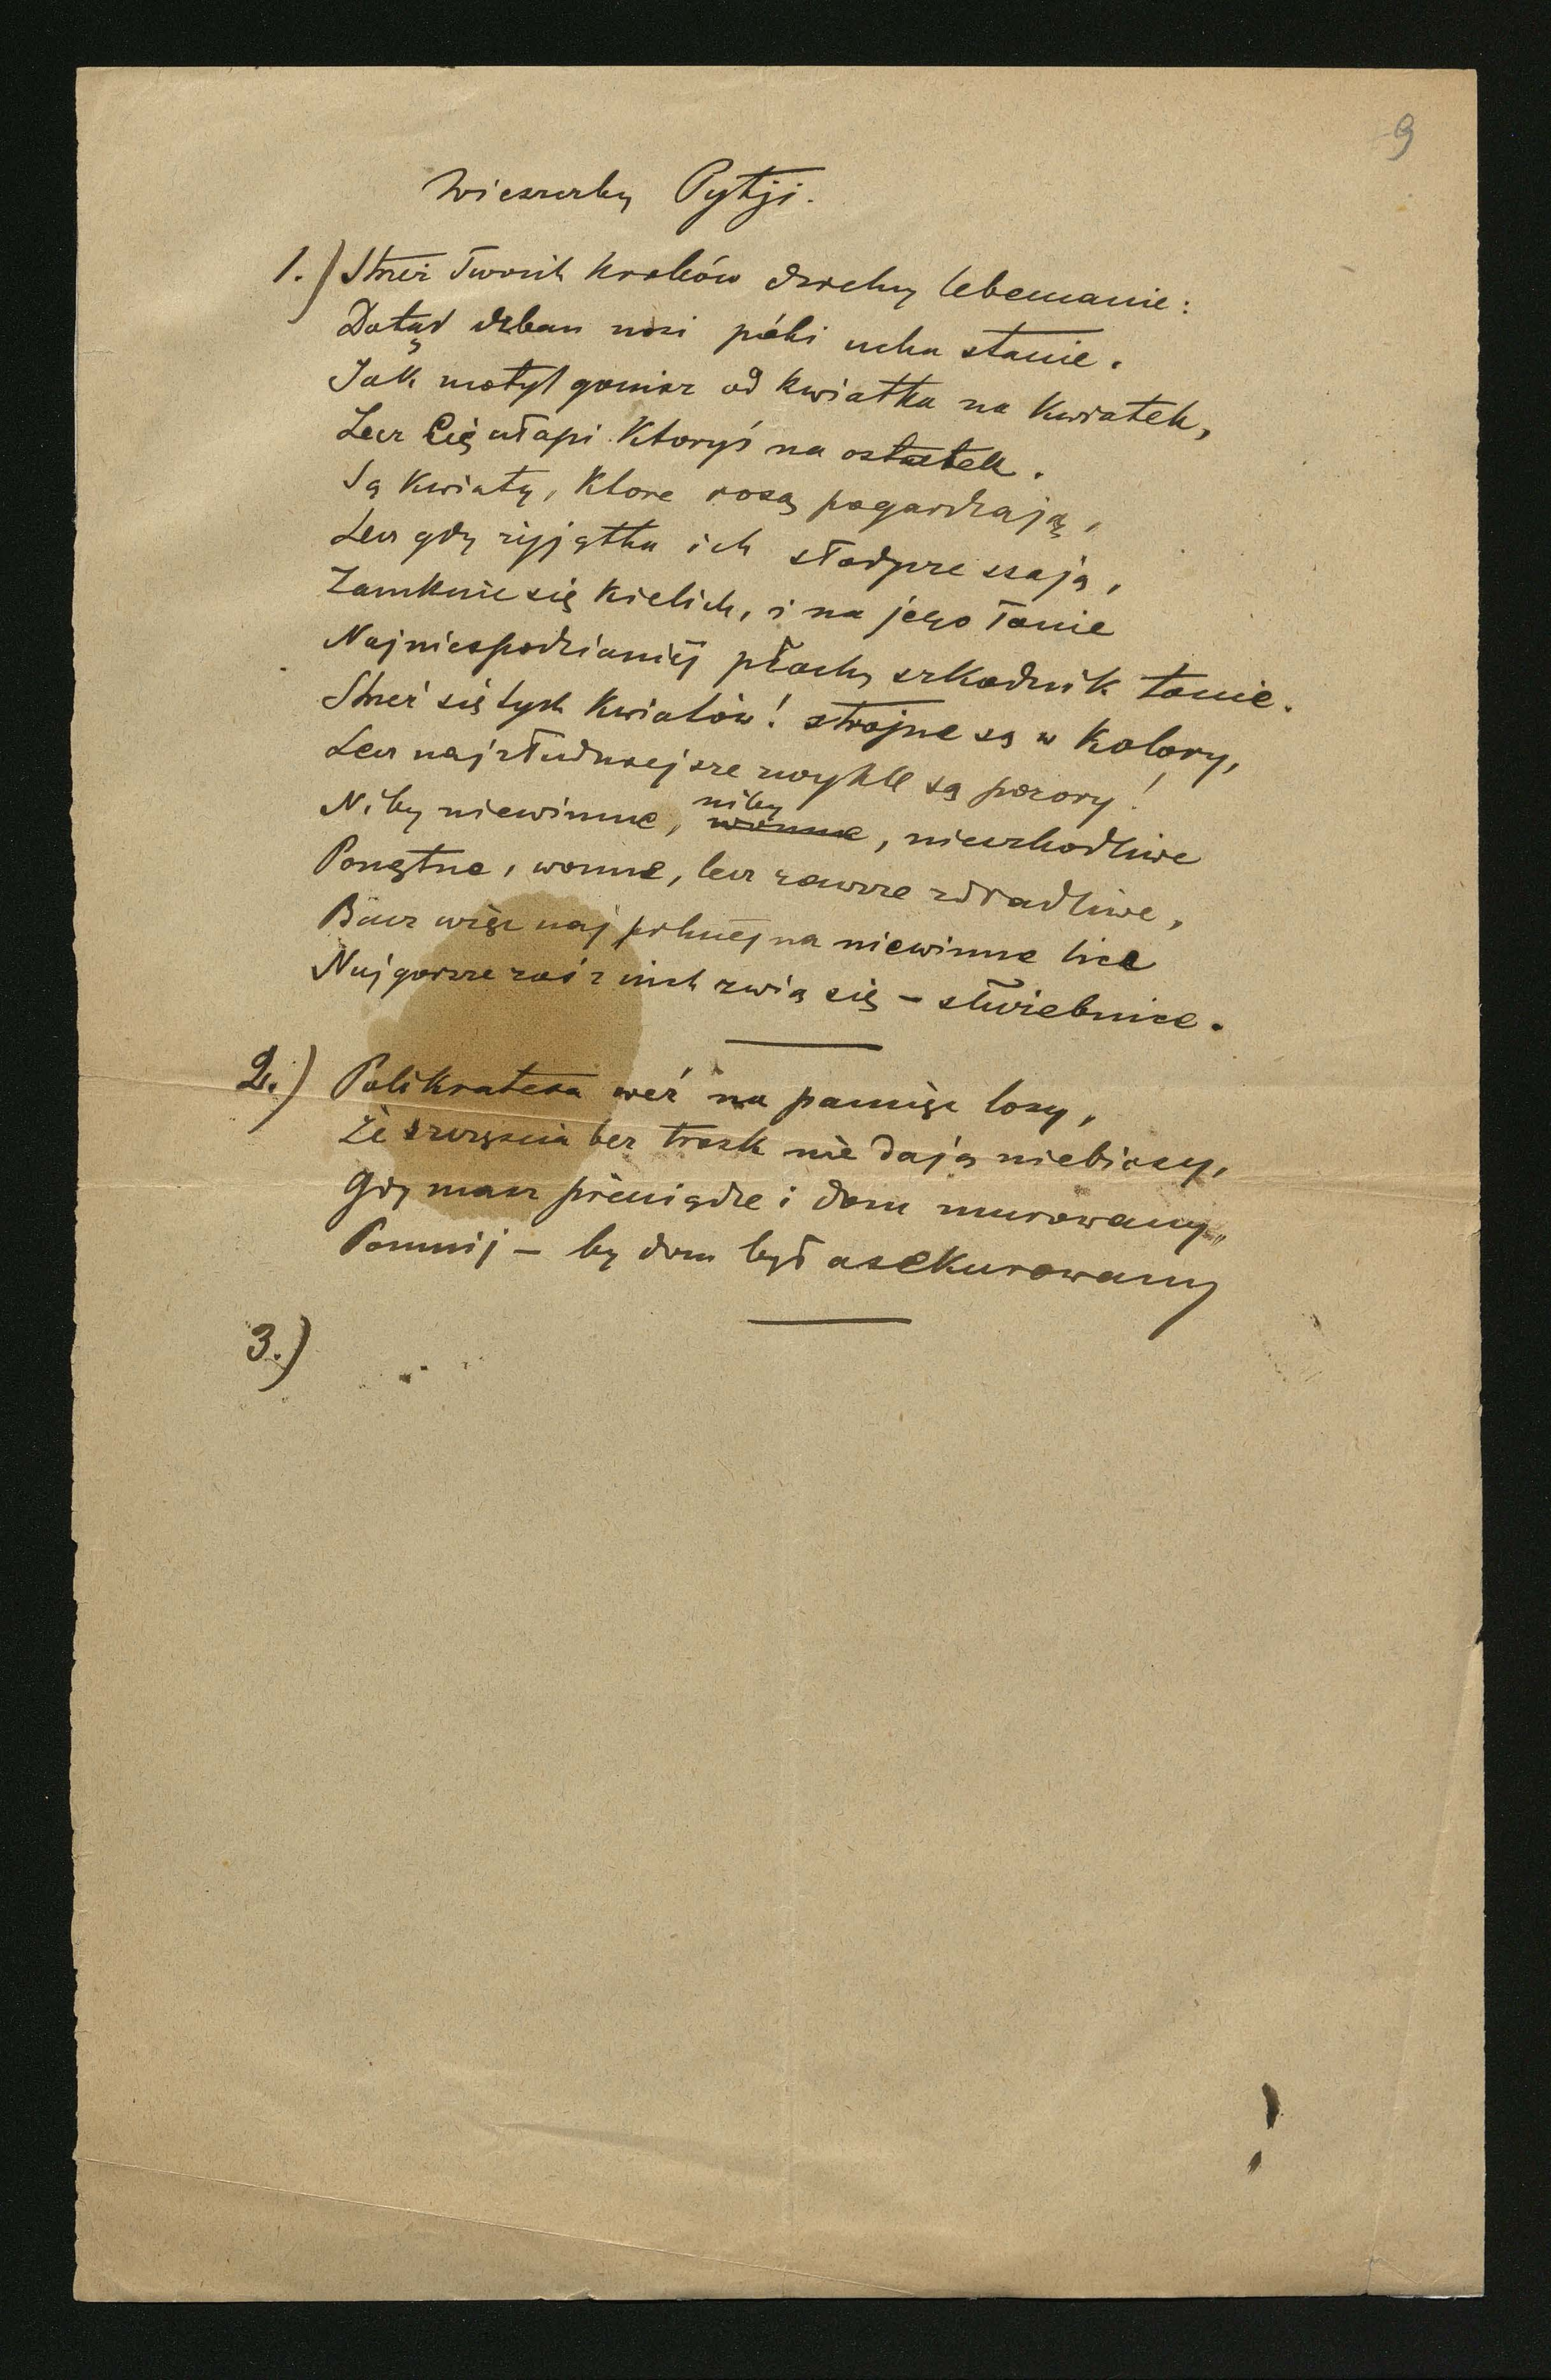 9
Wieszczby Pytji.
1.) Strzeż Twoich kroków dzielny lebemanie:
Dotąd dzban nosi póki ucha stanie.
Jak motyl goniaz od kwiatka na kwiatek,
Lecz Cię ułapi Ktoryś na ostatek.
Są kwiaty, Ktore rosą pogardzają,
Lecz gdy żyjątka ich słodycze ssają,
Zamknie się kielich, i na jego łonie
Najniespodzianiej płochy szkodnik tonie.
Strzeż się tych kwiatów! strojne są w kolory,
Lecz najzłudniejsze zwykle są pozory!
Niby niewinne, niby wonne, nieszkodliwe
Ponętne, wonne, lecz zawsze zdradliwe,
Bacz więc najpilniej na niewinne lica
Najgorsze zaś z nich zwią się – służebnice.
2.) Polikratesa weź na pamięć losy,
Że szczęścia bez trosk nie dają niebiosy,
Gdy masz pieniądze i dom murowany,
Pomnij – by dom był asekurowany
3.)